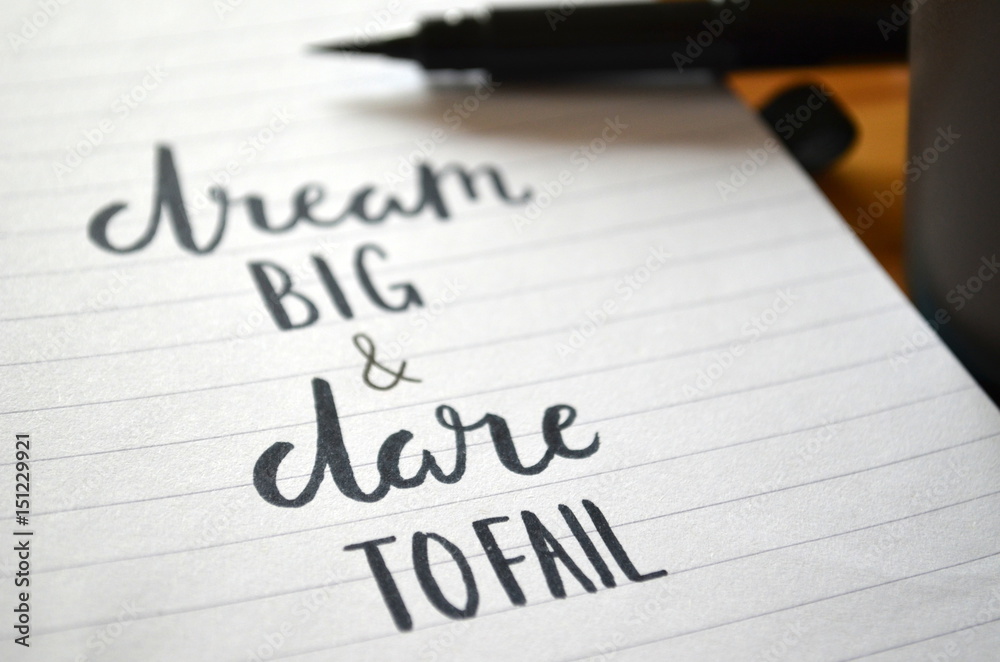 dream
BIG
&
dare
TO FAIL
Adobe Stock | #151229921